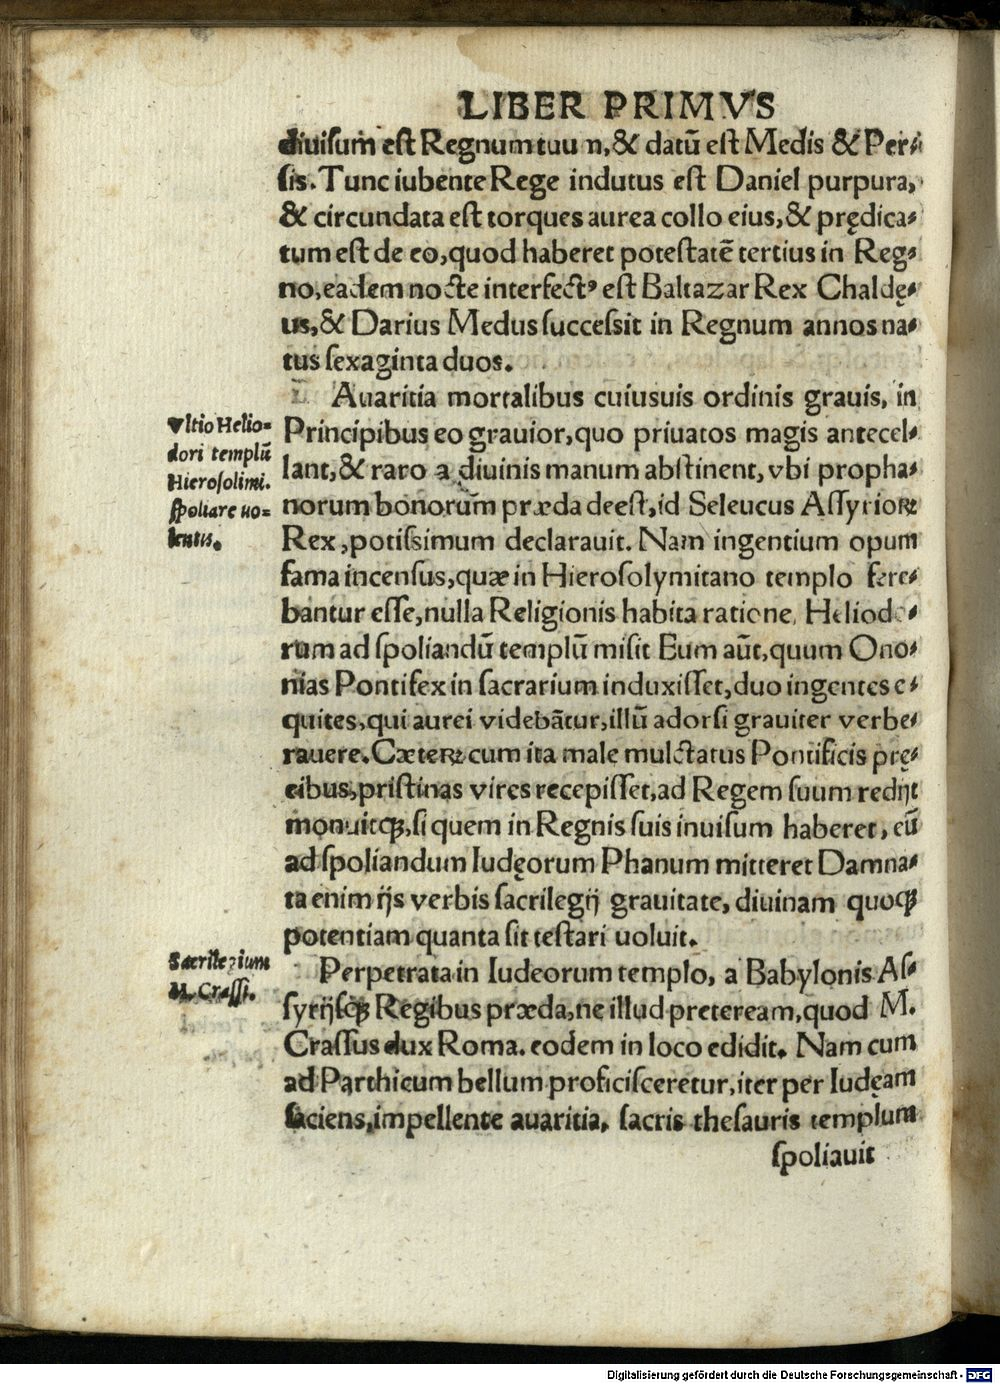 LIBER PRIMVS
diuisum est Regnum tuu n, & datū est Medis & Per⸗
sis. Tunc iubente Rege indutus est Daniel purpura,
& circundata est torques aurea collo eius, & prędica⸗
tum est de eo, quod haberet potestatē tertius in Reg⸗
no, eadem nocte interfectꝰ est Baltazar Rex Chaldę⸗
us, & Darius Medus successit in Regnum annos na⸗
tus sexaginta duos.
Avaritia mortalibus cuiusuis ordinis grauis, in
Principibus eo grauior, quo priuatos magis antecel⸗
lant, & raro a diuinis manum abstinent, vbi propha⸗
norum bonorum præda deest, id Seleucus Assyrioꝝ
Rex, potissimum declarauit. Nam ingentium opum
fama incensus, quæ in Hierosolymitano templo fere⸗
bantur esse, nulla Religionis habita ratione, Heliodo⸗
rum ad spoliandū templū misit Eum aūt, quum Ono⸗
nias Pontifex in sacrarium induxisset, duo ingentes e⸗
quites, qui aurei videbātur, illū adorsi grauiter verbe⸗
rauere. Cæteꝝ cum ita male mulctatus Pontificis prę⸗
cibus, pristinas vires recepisset, ad Regem suum redijt
monuitqꝫ, si quem in Regnis suis inuisum haberet, eū
ad spoliandum Iudęorum Phanum mitteret Damna⸗
ta enim ijs verbis sacrilegij grauitate, diuinam quoqꝫ
potentiam quanta sit testari uoluit.
Perpetrata in Iudeorum templo, a Babylonis As⸗
syrijsqꝫ Regibus præda, ne illud preteream, quod M.
Crassus dux Roma. eodem in loco edidit. Nam cum
ad Parthicum bellum proficisceretur, iter per Iudęam
faciens, impellente avaritia, sacris thesauris templum
spoliavit
Vltio Helio⸗
dori templū
Hierosolimi.
spoliare uo⸗
lentis.
Sacrilegium
M. Crassi.
Digitalisierung gefördert durch die Deutsche Forschungsgemeinschaft - DFG